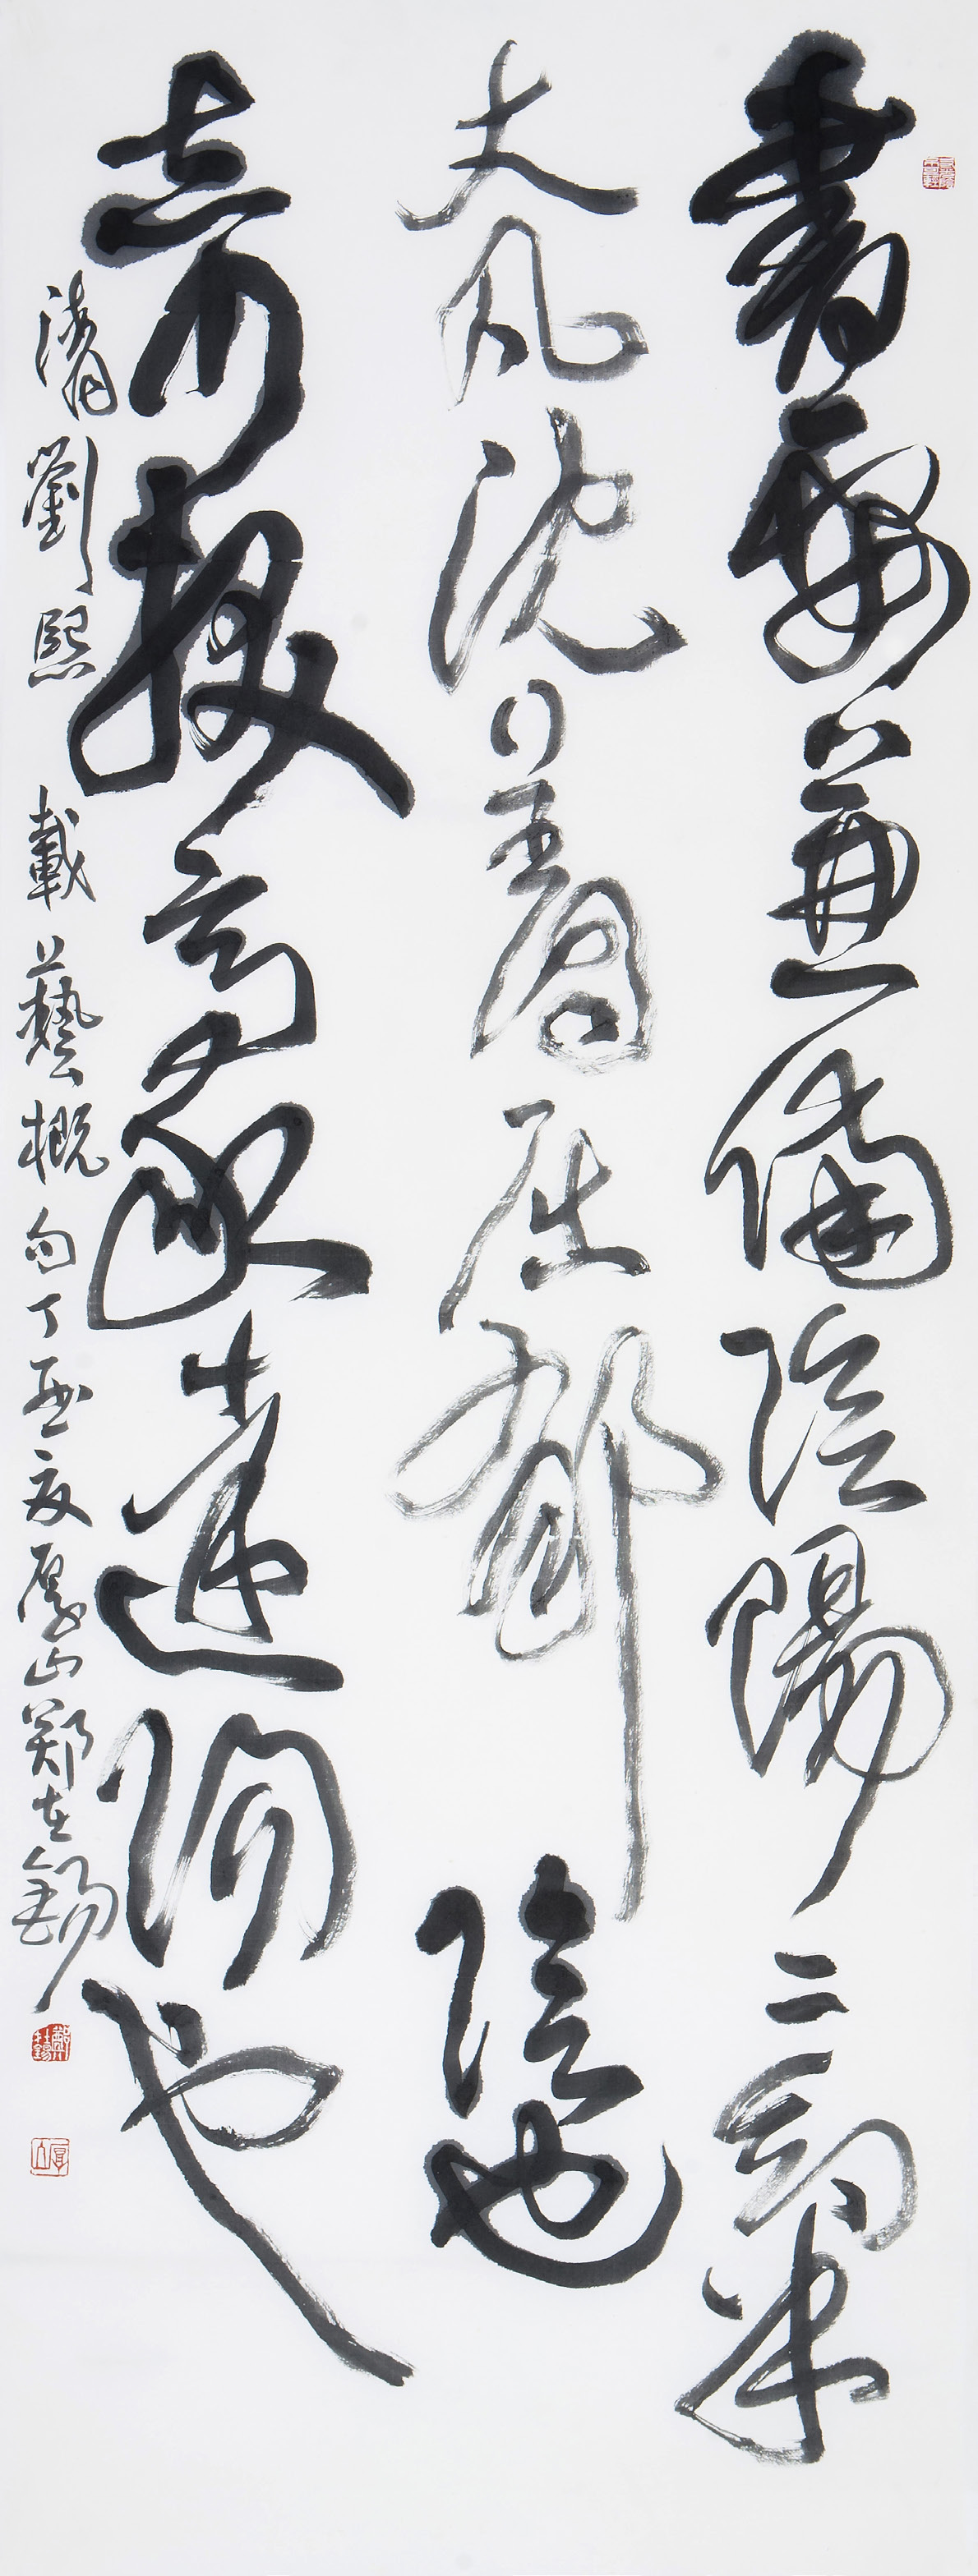 書要兼備陰陽二氣
大凡沈著屈鬱陰也
奇拔豪達陽也
清劉熙載藝概句丁亥夏厚山鄭在錫